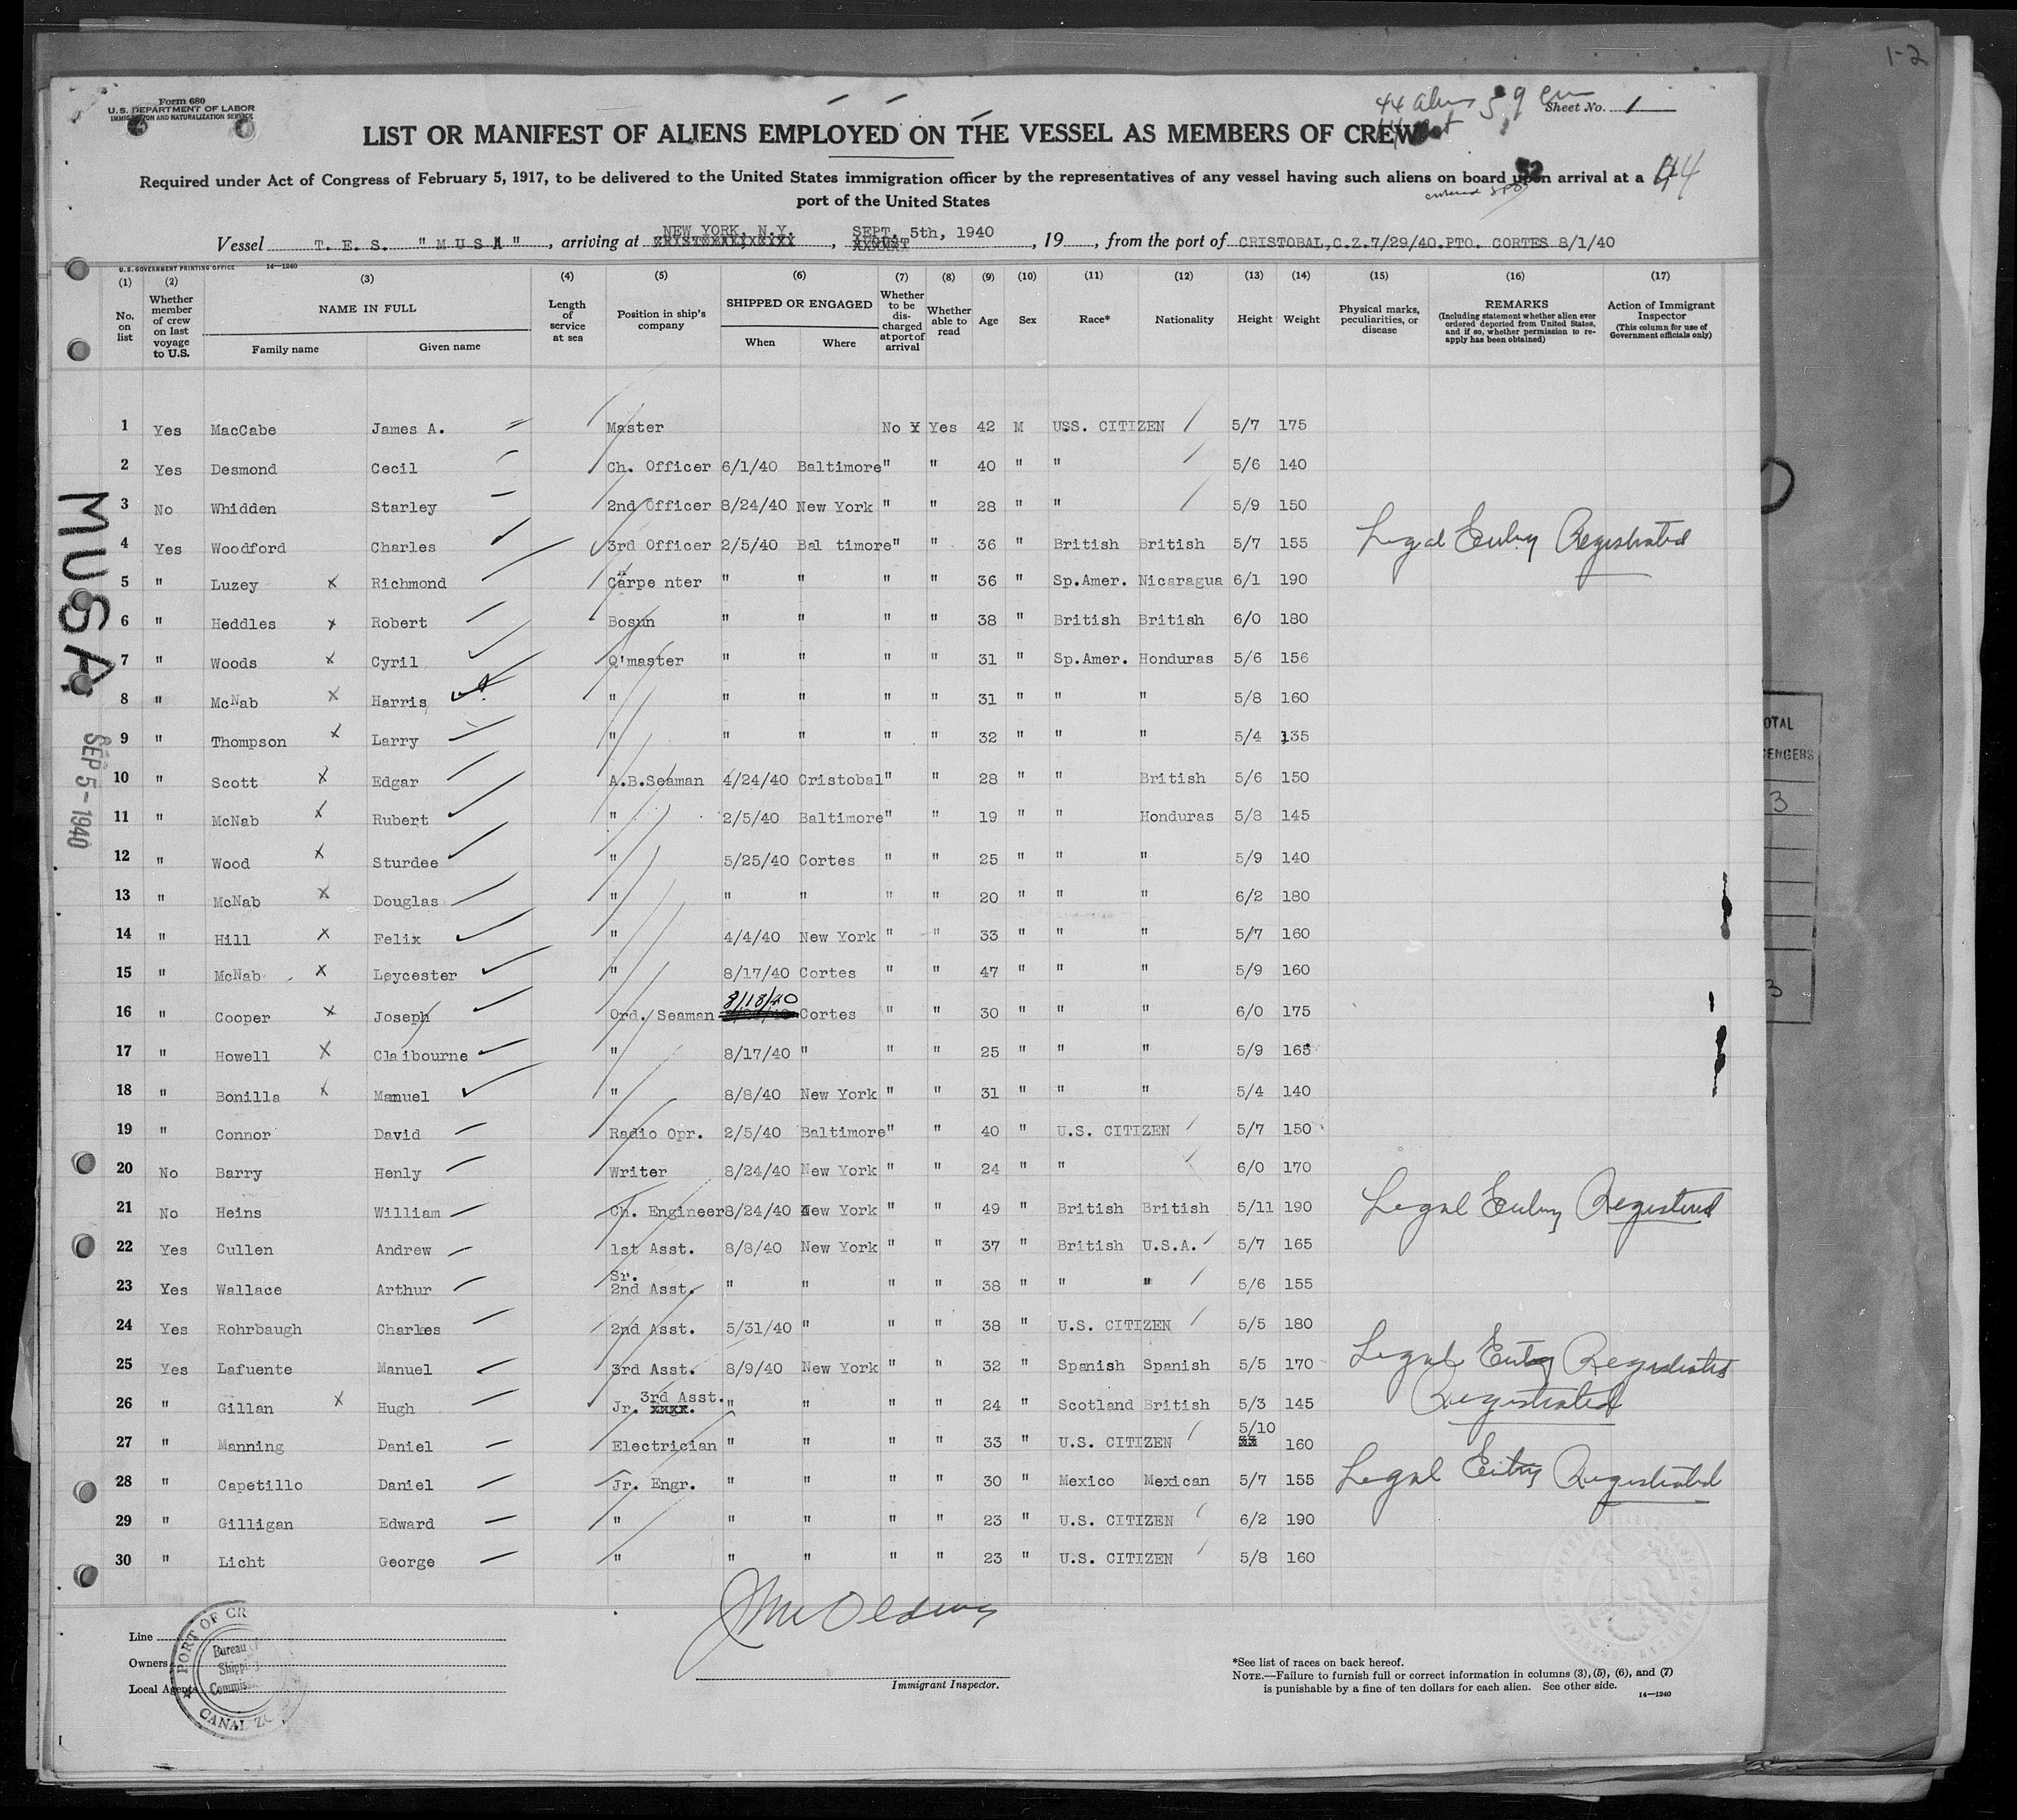 1-2
Form 680
U.S. DEPARTMENT OF LABOR
IMMIGRATION AND NATURALIZATION SERVICE
44
Sheet No. 1
LIST OR MANIFEST OF ALIENS EMPLOYED ON THE VESSEL AS MEMBERS OF CREW
Required under Act of Congress of February 5, 1917, to be delivered to the United States immigration officer by the representatives of any vessel having such aliens on board upon arrival at a
port of the United States
52
44
NEW YORK, N.Y. SEPT. 5th, 1940
Vessel T. E. S. "MUSA", arriving at , AUGUST , 19 , from the port of CRISTOBAL,C.Z.7/29/40.PTO. CORTES 8/1/40
U.S. GOVERNMENT PRINTING OFFICE 14—1240
(1) (2) (3) (4) (5) (6) (7) (8) (9) (10) (11) (12) (13) (14) (15) (16) (17)
No. on list Whether member of crew on last voyage to U.S. NAME IN FULL Family name Given name Length of service at sea Position in ship's company SHIPPED OR ENGAGED When Where Whether to be discharged at port of arrival Whether able to read Age Sex Race* Nationality Height Weight Physical marks, peculiarities, or disease REMARKS (Including statement whether alien ever ordered deported from United States, and if so, whether permission to reapply has been obtained) Action of Immigrant Inspector (This column for use of Government officials only)
1 Yes MacCabe James A. Master No X Yes 42 M USS. CITIZEN 5/7 175
2 Yes Desmond Cecil Ch. Officer 6/1/40 Baltimore " " 40 " " 5/6 140
3 No Whidden Starley 2nd Officer 8/24/40 New York " " 28 " " 5/9 150
4 Yes Woodford Charles 3rd Officer 2/5/40 Bal timore " " 36 " British British 5/7 155 Legal Entry Registrated
5 " Luzey x Richmond Carpe nter " " " " 36 " Sp.Amer. Nicaragua 6/1 190
6 " Heddles x Robert Bosun " " " " 38 " British British 6/0 180
7 " Woods x Cyril Q'master " " " " 31 " Sp.Amer. Honduras 5/6 156
8 " McNab x Harris " " " " " 31 " " " 5/8 160
9 " Thompson x Larry " " " " " 32 " " " 5/4 135
10 " Scott x Edgar A.B.Seaman 4/24/40 Cristobal " " 28 " " British 5/6 150
11 " McNab x Rubert " 2/5/40 Baltimore " " 19 " " Honduras 5/8 145
12 " Wood x Sturdee " 5/25/40 Cortes " " 25 " " " 5/9 140
13 " McNab x Douglas " " " " " 20 " " " 6/2 180
14 " Hill x Felix " 4/4/40 New York " " 33 " " " 5/7 160
15 " McNab x Leycester " 8/17/40 Cortes " " 47 " " " 5/9 160
16 " Cooper x Joseph Ord. Seaman 8/18/40 Cortes " " 30 " " " 6/0 175
17 " Howell x Claibourne " 8/17/40 " " " 25 " " " 5/9 165
18 " Bonilla x Manuel " 8/8/40 New York " " 31 " " " 5/4 140
19 " Connor David Radio Opr. 2/5/40 Baltimore " " 40 " U.S. CITIZEN 5/7 150
20 No Barry Henly Writer 8/24/40 New York " " 24 " " 6/0 170
21 No Heins William Ch. Engineer 8/24/40 New York " " 49 " British British 5/11 190 Legal Entry Registered
22 Yes Cullen Andrew 1st Asst. 8/8/40 New York " " 37 " British U.S.A. 5/7 165
23 Yes Wallace Arthur Sr. 2nd Asst. " " " " 38 " " " 5/6 155
24 Yes Rohrbaugh Charles 2nd Asst. 5/31/40 " " " 38 " U.S. CITIZEN 5/5 180
25 Yes Lafuente Manuel 3rd Asst. 8/9/40 New York " " 32 " Spanish Spanish 5/5 170 Legal Entry Registrated
26 " Gillan x Hugh Jr. 3rd Asst. " " " " 24 " Scotland British 5/3 145 Registrated
27 " Manning Daniel Electrician " " " " 33 " U.S. CITIZEN 5/10 160
28 " Capetillo Daniel Jr. Engr. " " " " 30 " Mexico Mexican 5/7 155 Legal Entry Registrated
29 " Gilligan Edward " " " " " 23 " U.S. CITIZEN 6/2 190
30 " Licht George " " " " " 23 " U.S. CITIZEN 5/8 160
MUSA
SEP 5-1940
OTAL
ENGERS
3
3
Line
Owners
Local Agents
PORT OF CR
Bureau
Shipping
Commiss
CANAL ZO
Immigrant Inspector.
*See list of races on back hereof.
NOTE.—Failure to furnish full or correct information in columns (3), (5), (6), and (7)
is punishable by a fine of ten dollars for each alien. See other side.
14—1240